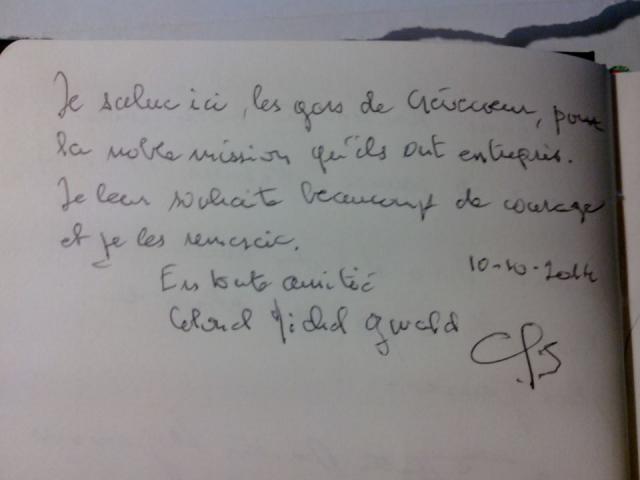 Je salue ici, les gars de Crèvecoeur, pour
la noble mission qu'ils ont entrepris.
Je leur souhaite beaucoup de courage
et je les remercie.
10-10-2014
En toute amitié
Colonel Michel